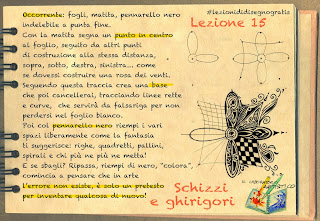 #lezionididisegnogratis
Lezione 15
Occorrente: fogli, matita, pennarello nero
indelebile a punta fine.
Con la matita segna un punto in centro
al foglio, seguito da altri punti
di costruzione alla stessa distanza,
sopra, sotto, destra, sinistra... come
se dovessi costruire una rosa dei venti.
Seguendo questa traccia crea una base
che poi cancellerai, tracciando linee rette
e curve, che servirà da falsariga per non
perdersi nel foglio bianco.
Poi col pennarello nero riempi i vari
spazi liberamente come la fantasia
ti suggerisce: righe, quadretti, pallini,
spirali e chi più ne più ne metta!
E se sbagli? Ripassa, riempi di nero, "colora",
comincia a pensare che in arte
L'errore non esiste, è solo un pretesto
per inventare qualcosa di nuovo!
Schizzi
e ghirigori